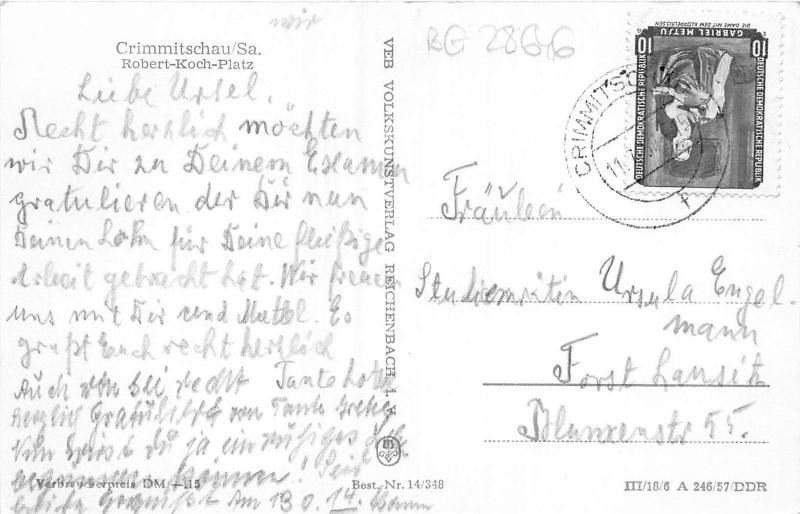 wir
Crimmitschau/Sa.
Robert-Koch-Platz
Liebe Ursel.
Recht herzlich möchten
wir Dir zu Deinem Examen
gratulieren der Dir nun
Deinen Lohn für Deine fleißige
Arbeit gebracht hat. Wir freuen
uns mit Dir und Muttel. Es
grüßt Euch recht herzlich
Tante Lotte
Auch sei recht
herzlich von Tante
Du ja ein ruhiges
können!
Am
Verbraucherpreis DM –.15
Best.-Nr. 14/348
VEB VOLKSKUNSTVERLAG REICHENBACH i. V.
BG 2866
CRIMMITSCHAU
11.
f
GABRIEL METSU
DIE DAME MIT DEM KLÖPPELKISSEN
10
10
DEUTSCHE DEMOKRATISCHE REPUBLIK
DEUTSCHE DEMOKRATISCHE REPUBLIK
Fräulein
Studienrätin Ursula Engel-
mann
Forst Lausitz
Blumenstr 55.
III/18/6 A 246/57/DDR